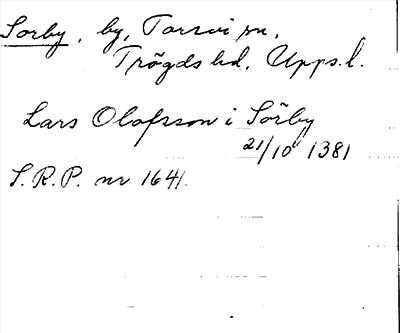 Sorby, by, Torsvi sn,
Trögds hd, Upps. l.
Lars Olofsson i Sörby
21/10 1381
S.R.P. nr 1641.